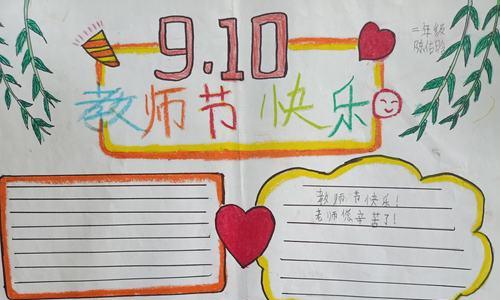 9.10
教师节快乐
二年级
教师节快乐!
老师您辛苦了!